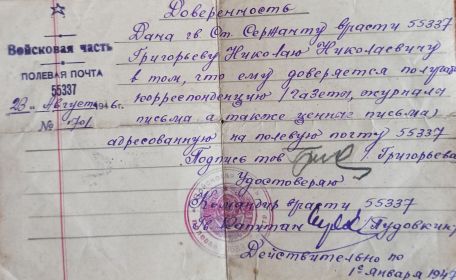 Доверенность
Войсковая часть
ПОЛЕВАЯ ПОЧТА
55337
23 Августа 1946 г.
№ 701
Дана гв Ст. Сержанту в/части 55337
Григорьеву Николаю Николаевичу
в том, что ему доверяется получать
корреспонденцию (газеты, журнала
письма а также ценные письма)
адресованную на полевую почту 55337
Подпись тов / Григорьева
Удостоверяю
Командир в/части 55337
Гв. Капитан /Пудовкин/
Действительно по
1ое января 1947